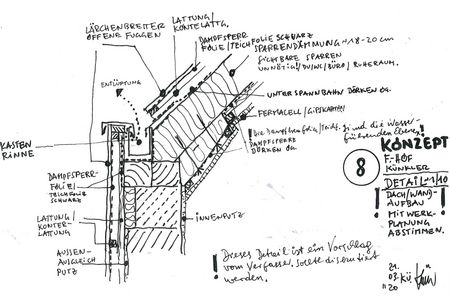 LÄRCHENBRETTER
OFFENE FUGEN
LATTUNG/
KONTELATTG.
DAMPFSPERR
FOLIE/TEICHFOLIE SCHWARZ
SPARRENDÄMMUNG ~18-20 cm
SICHTBARE SPARREN
UNNÖTIG! DU/WC/BÜRO/RUHERAUM.
ENTLÜFTUNG
UNTERSPANNBAHN DÖRKEN OG.
FERMACELL/GIPSKARTON
KASTEN
RINNE
! Die Dampfsperrfolie/Teichf. sind die Wasser
führenden Ebenen!
DAMPFSPERRE
DÖRKEN OG.
KONZEPT
8
F-HOF
KÜNKLER
DETAIL ~1/10
! DACH/WAND- !
AUFBAU
MIT WERK-
PLANUNG
ABSTIMMEN.
DAMPFSPERR-
FOLIE/
TEICHFOLIE
SCHWARZ
LATTUNG/
KONTER-
LATTUNG
INNENPUTZ
AUSSEN-
AUSGLEICH
PUTZ
! Dieses Detail ist ein Vorschlag
vom Verfasser. Sollte diskutiert
werden.
21.
03. Kü.
"20